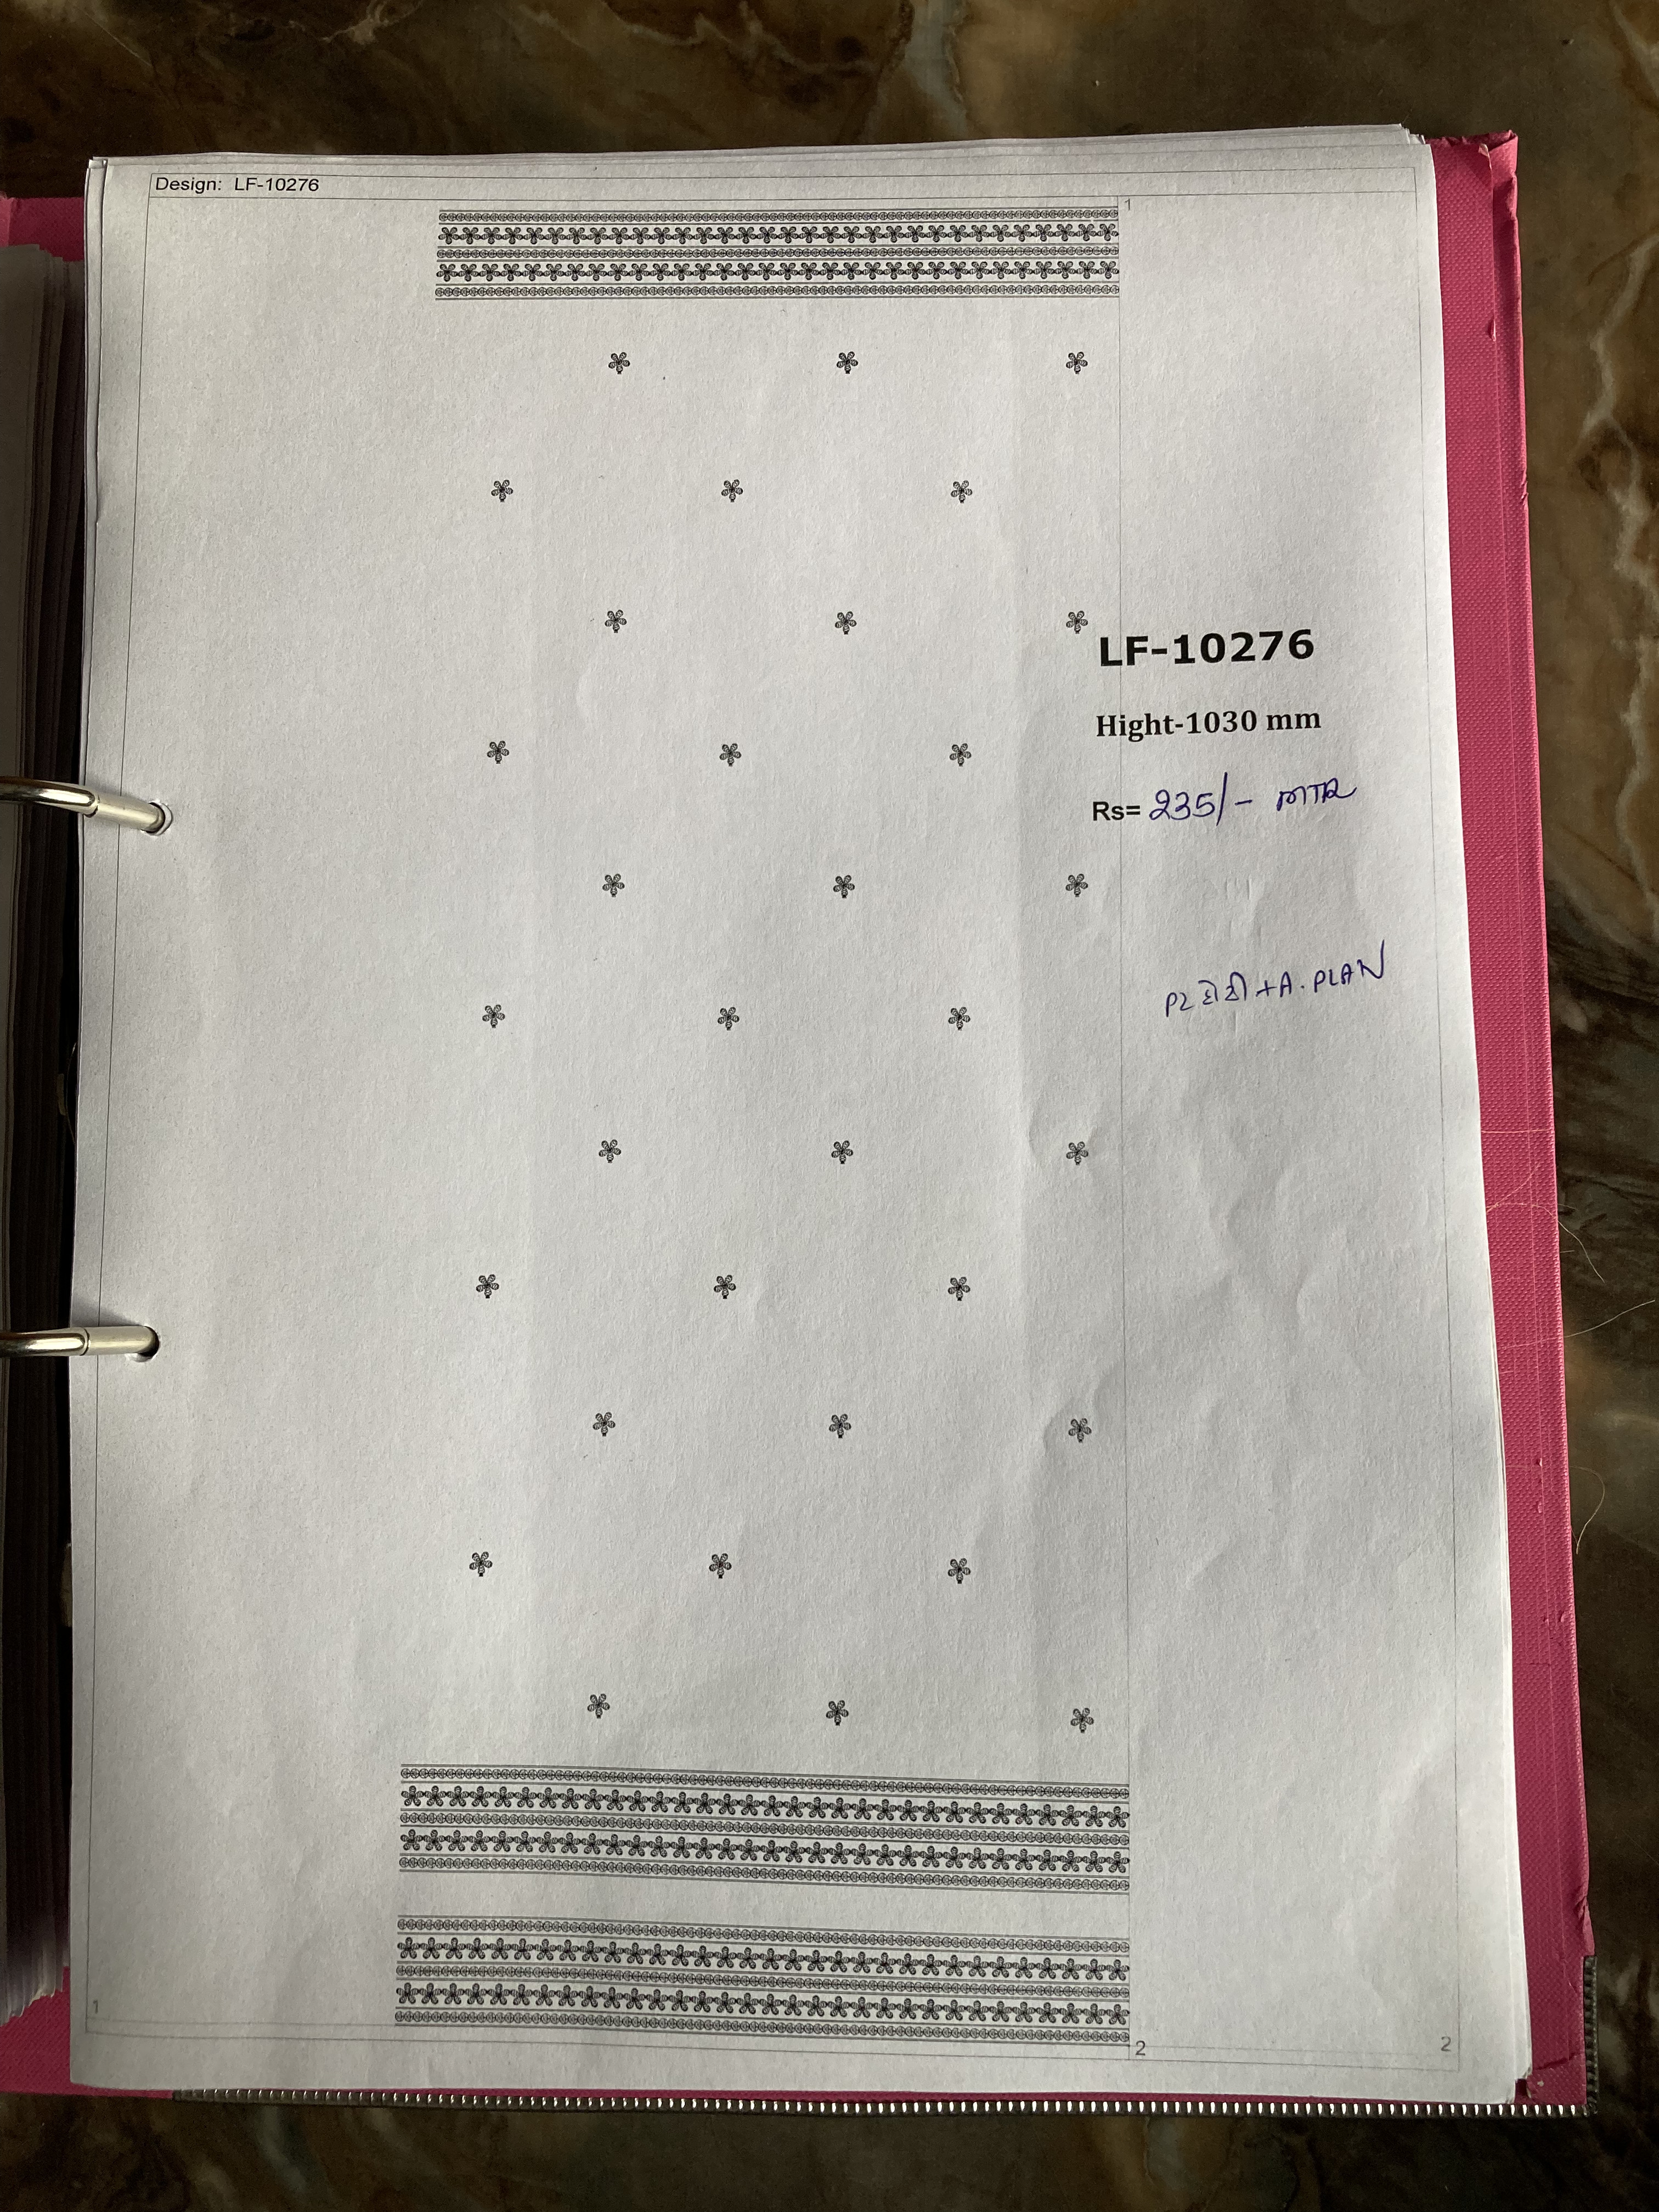 Design: LF-10276
1
LF-10276
Hight-1030 mm
Rs= 235/- MTR
+A. PLAN
1
2
2